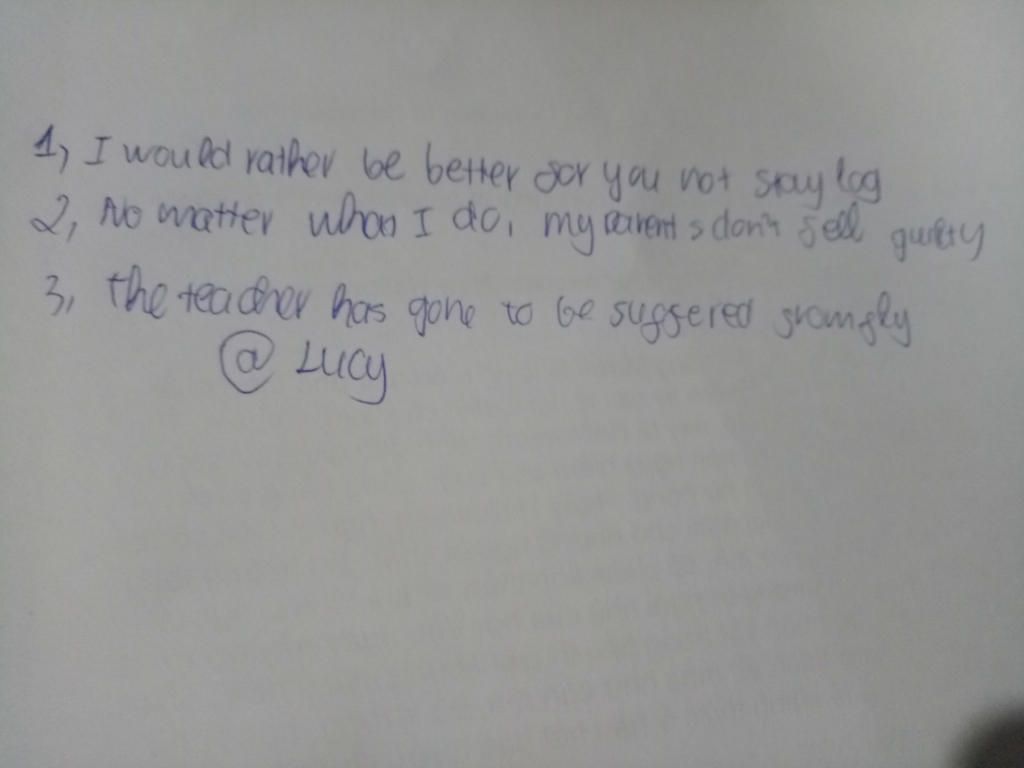 1, I would rather be better for you not stay log
2, No matter when I do, my parents don't fell guilty
3, the teacher has gone to be suffered
@ Lucy